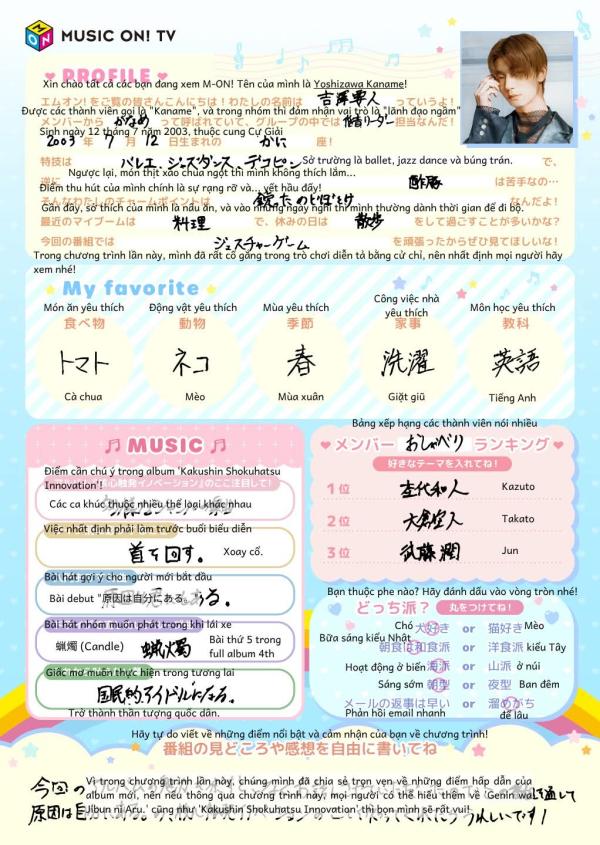 MUSIC ON! TV
PROFILE
Xin chào tất cả các bạn đang xem M-ON! Tên của mình là Yoshizawa Kaname!
エムオン!をご覧の皆さんこんにちは!わたしの名前は 吉澤要人 っていうよ!
Được các thành viên gọi là "Kaname", và trong nhóm thì đảm nhận vai trò là "lãnh đạo ngầm"
メンバーから かなめ って呼ばれていて、グループの中では リーダー担当なんだ!
Sinh ngày 12 tháng 7 năm 2003, thuộc cung Cự Giải
2003年 7月 12日生まれの かに 座!
特技は バレエ、ジャズダンス、デコピン で、
Sở trường là ballet, jazz dance và búng trán.
Ngược lại, món thịt xào chua ngọt thì mình không thích lắm...
逆に 酢豚 は苦手なの…
Điểm thu hút của mình chính là sự rạng rỡ và... yết hầu đấy!
そんなわたしのチャームポイントは のどぼとけ なんだよ!
Gần đây, sở thích của mình là nấu ăn, và vào những ngày nghỉ thì mình thường dành thời gian để đi bộ.
最近のマイブームは 料理 で、休みの日は 散歩 をして過ごすことが多いかな?
今回の番組では ジェスチャーゲーム を頑張ったからぜひ見てほしいな!
Trong chương trình lần này, mình đã rất cố gắng trong trò chơi diễn tả bằng cử chỉ, nên nhất định mọi người hãy
xem nhé!
My favorite
Món ăn yêu thích Động vật yêu thích Mùa yêu thích Công việc nhà yêu thích Môn học yêu thích
食べ物 動物 季節 家事 教科
トマト ネコ 春 洗濯 英語
Cà chua Mèo Mùa xuân Giặt giũ Tiếng Anh
MUSIC
Điểm cần chú ý trong album 'Kakushin Shokuhatsu
Innovation'!
心触発イノベーション』のここ注目して!
Các ca khúc thuộc nhiều thể loại khác nhau
Việc nhất định phải làm trước buổi biểu diễn
首を回す。 Xoay cổ.
Bài hát gợi ý cho người mới bắt đầu
Bài debut "原因は自分にある。
Bài hát nhóm muốn phát trong khi lái xe
蝋燭 (Candle) 蝋燭 Bài thứ 5 trong
full album 4th
Giấc mơ muốn thực hiện trong tương lai
国民的アイドルになる。
Trở thành thần tượng quốc dân.
Bảng xếp hạng các thành viên nói nhiều
メンバー おしゃべり ランキング
好きなテーマを入れてね!
1位 杢代和人 Kazuto
2位 大倉空人 Takato
3位 武藤潤 Jun
Bạn thuộc phe nào? Hãy đánh dấu vào vòng tròn nhé!
どっち派? 丸をつけてね!
Chó 犬好き or 猫好き Mèo
Bữa sáng kiểu Nhật 朝食は和食派 or 洋食派 kiểu Tây
Hoạt động ở biển 海派 or 山派 ở núi
Sáng sớm 朝型 or 夜型 Ban đêm
メールの返事は早い or 溜めがち
Phản hồi email nhanh để lâu
Hãy tự do viết về những điểm nổi bật và cảm nhận của bạn về chương trình!
番組の見どころや感想を自由に書いてね
今回の
Vì trong chương trình lần này, chúng mình đã chia sẻ trọn vẹn về những điểm hấp dẫn của
album mới, nên nếu thông qua chương trình này, mọi người có thể hiểu thêm về 'Genin wa
を通して
原因は自
Jibun ni Aru.' cũng như 'Kakushin Shokuhatsu Innovation' thì bọn mình sẽ rất vui!
うれしいです!